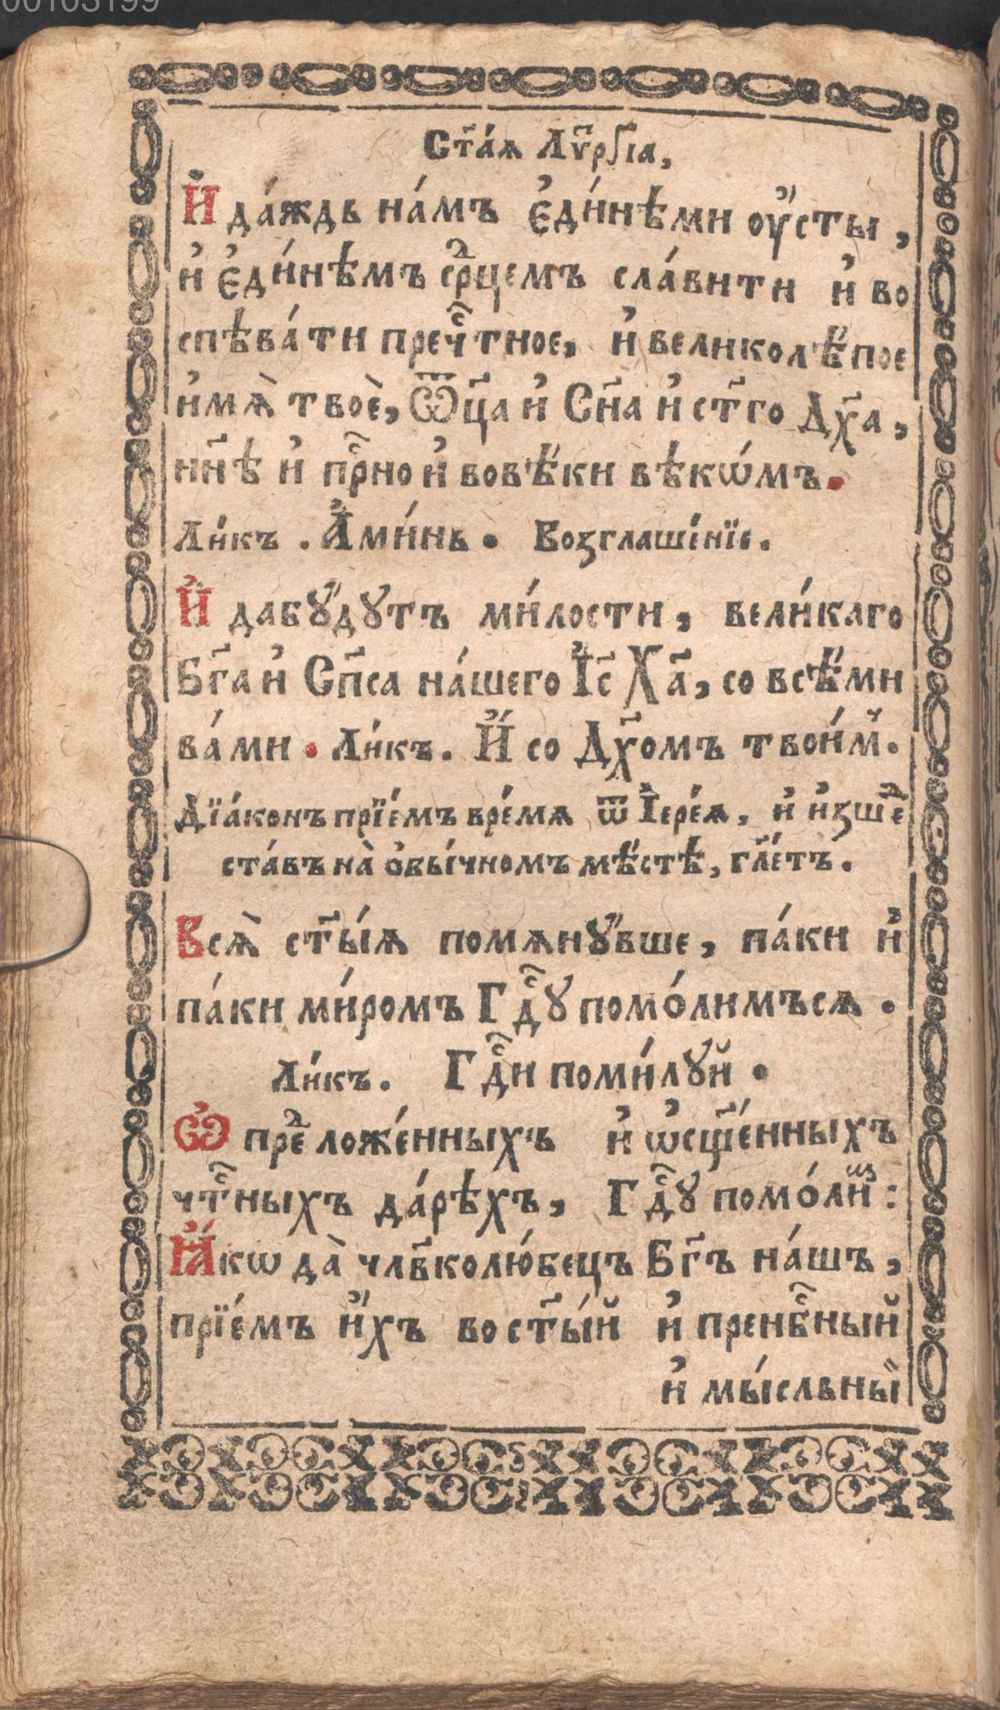 00103199
Ст҃аѧ Лꙋ҃ргїа,
И҆ да́ждь на́мъ є҆ди́нѣми оу҆́сты,
и҆ є҆ди́нѣмъ ср҃цемъ сла́вити и҆ во
спѣва́ти преч҇тное, и҆ великолѣ́пое
и҆мѧ̀ твоѐ, Ѿц҃а и҆ Сн҃а и҆ ст҃го Дх҃а,
нн҃ѣ и҆ пр҇но и҆ вовѣ́ки вѣкѡ́мъ.
Ли́къ. А҆ми́нь. Возглаше́нїе.
И҆ дабꙋ́дꙋтъ ми́лости, вели́каго
Бг҃а и҆ Сп҃са на́шего І҆с҃ Ха҃, со всѣ́ми
ва́ми. Ли́къ. И҆ со Дх҃омъ твои́мъ.
Дїа́конъ прїе́мъ вре́мѧ ѿ І҆ере́ѧ, и҆ и҆зше́д
ста́въ на̀ о҆бы́чномъ мѣ́стѣ, гл҃етъ.
Всѧ̀ ст҃ы́ѧ помѧнꙋ́вше, па́ки и҆
па́ки ми́ромъ Гд҇ꙋ помо́лимъсѧ.
Ли́къ. Гд҇и поми́лꙋй.
Ѡ҆ предложе́нныхъ и҆ ѡ҆сщ҃е́нныхъ
чт҇ныхъ да́рѣхъ, Гд҇ꙋ помо́ли:
Ꙗ҆́кѡ да̀ члв҃колю́бецъ Бг҃ъ на́шъ,
прїе́мъ и҆́хъ во ст҃ы́й и҆ пренб҇ный
и҆ мы́сльный